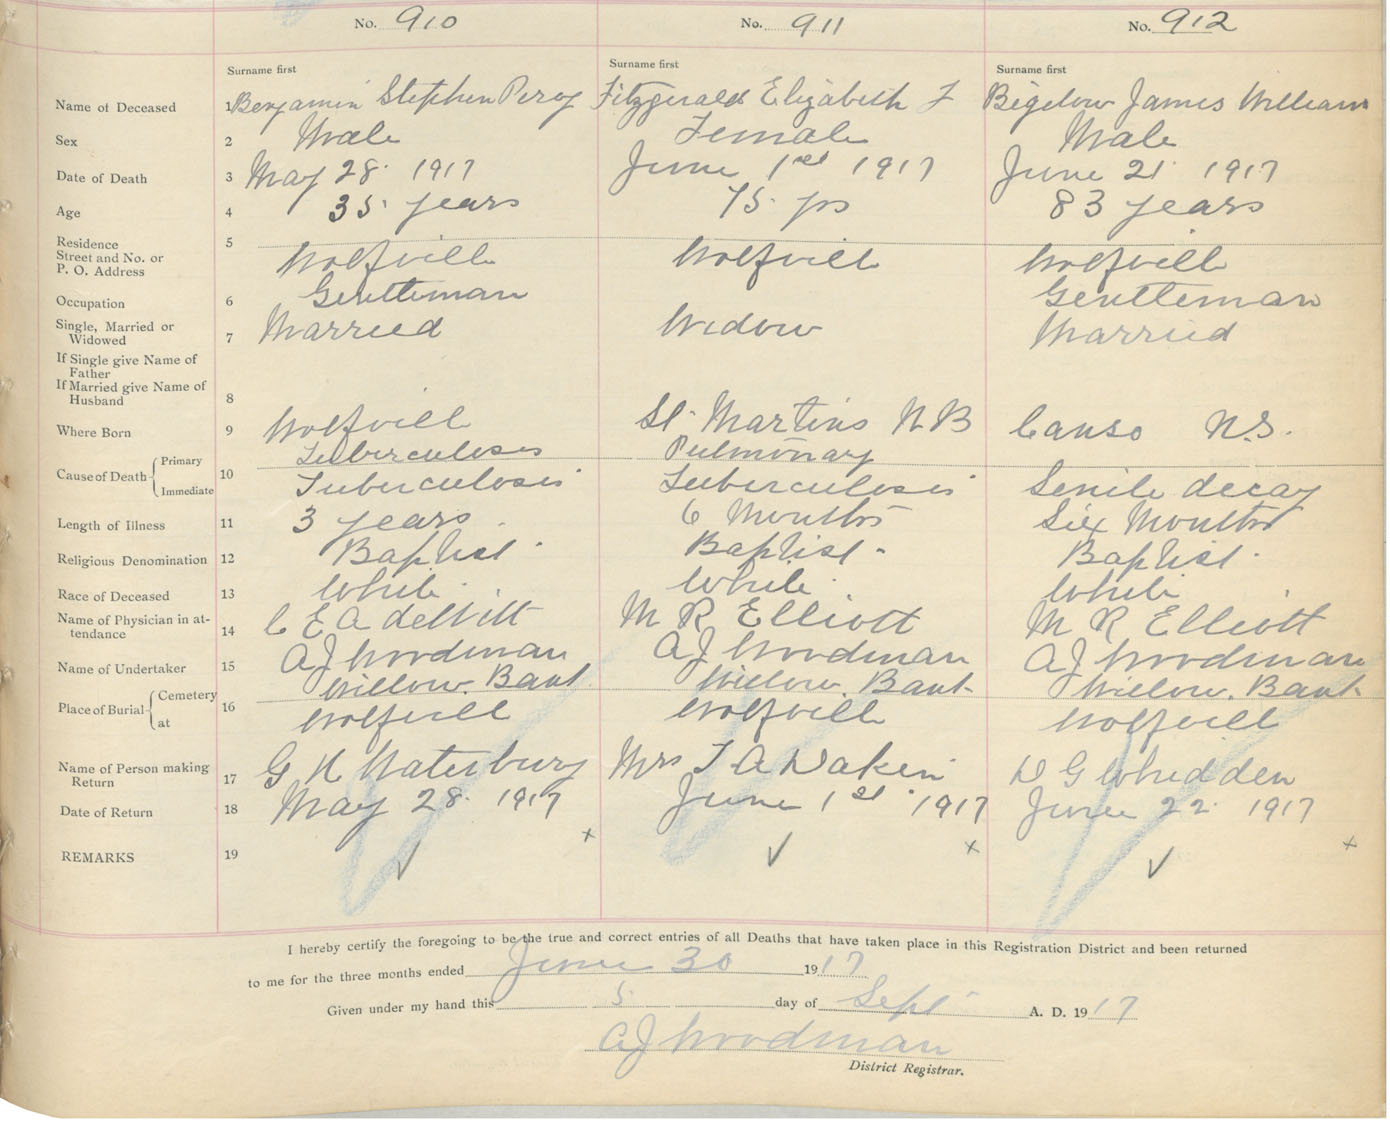 No. 910 No. 911 No. 912
Surname first Surname first Surname first
Name of Deceased 1 Benjamin Stephen Percy Fitzgerald Elizabeth F Bigelow James William
Sex 2 Male Female Male
Date of Death 3 May 28 1917 June 1st 1917 June 21 1917
Age 4 35 years 75 yrs 83 years
Residence
Street and No. or
P. O. Address 5 Wolfville Wolfville Wolfville
Occupation 6 Gentleman Gentleman
Single, Married or
Widowed 7 Married Widow Married
If Single give Name of
Father
If Married give Name of
Husband 8
Where Born 9 Wolfville St. Martins N B Canso N.S.
Cause of Death Primary Tuberculosis Pulmonary
10
Immediate Tuberculosis Tuberculosis Senile decay
Length of Illness 11 3 years 6 Months Six Months
Religious Denomination 12 Baptist Baptist Baptist
Race of Deceased 13 White White White
Name of Physician in at-
tendance 14 C E A deWitt M R Elliott M R Elliott
Name of Undertaker 15 A J Woodman A J Woodman A J Woodman
Place of Burial Cemetery Willow Bank Willow Bank Willow Bank
16
at Wolfville Wolfville Wolfville
Name of Person making
Return 17 G H Waterbury Mrs T A Dakin D G Whidden
Date of Return 18 May 28 1917 June 1st 1917 June 22 1917
REMARKS 19
I hereby certify the foregoing to be the true and correct entries of all Deaths that have taken place in this Registration District and been returned
to me for the three months ended June 30 1917
Given under my hand this 5 day of Sept A. D. 1917
A J Woodman
District Registrar.